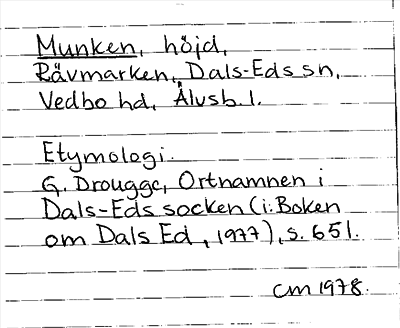 Munken, höjd,
Rävmarken, Dals-Eds sn,
Vedbo hd, Älvsb. l.
Etymologi.
G. Drougge, Ortnamnen i
Dals-Eds socken (i: Boken
om Dals Ed, 1977), s. 651.
CM 1978.